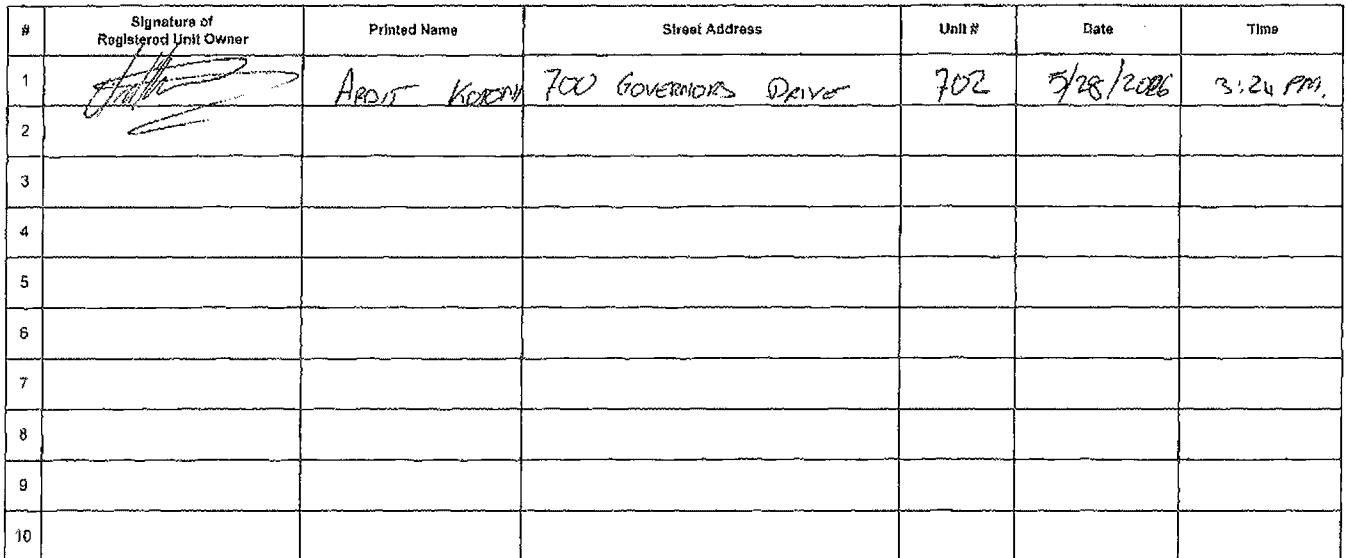 # Signature of Registered Unit Owner Printed Name Street Address Unit # Date Time
1 ARDIT 700 GOVERNORS DRIVE 702 5/28/2026 3:24 PM.
2
3
4
5
6
7
8
9
10